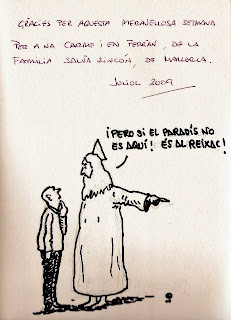 GRÀCIES PER AQUESTA MERAVELLOSA SETMANA
PER A NA CARME I EN FERRAN, DE LA
FAMÍLIA SALVÀ RINCÓN, DE MALLORCA.
JULIOL 2009
¡PERO SI EL PARADÍS NO
ES AQUÍ! ÉS AL REIXAC!